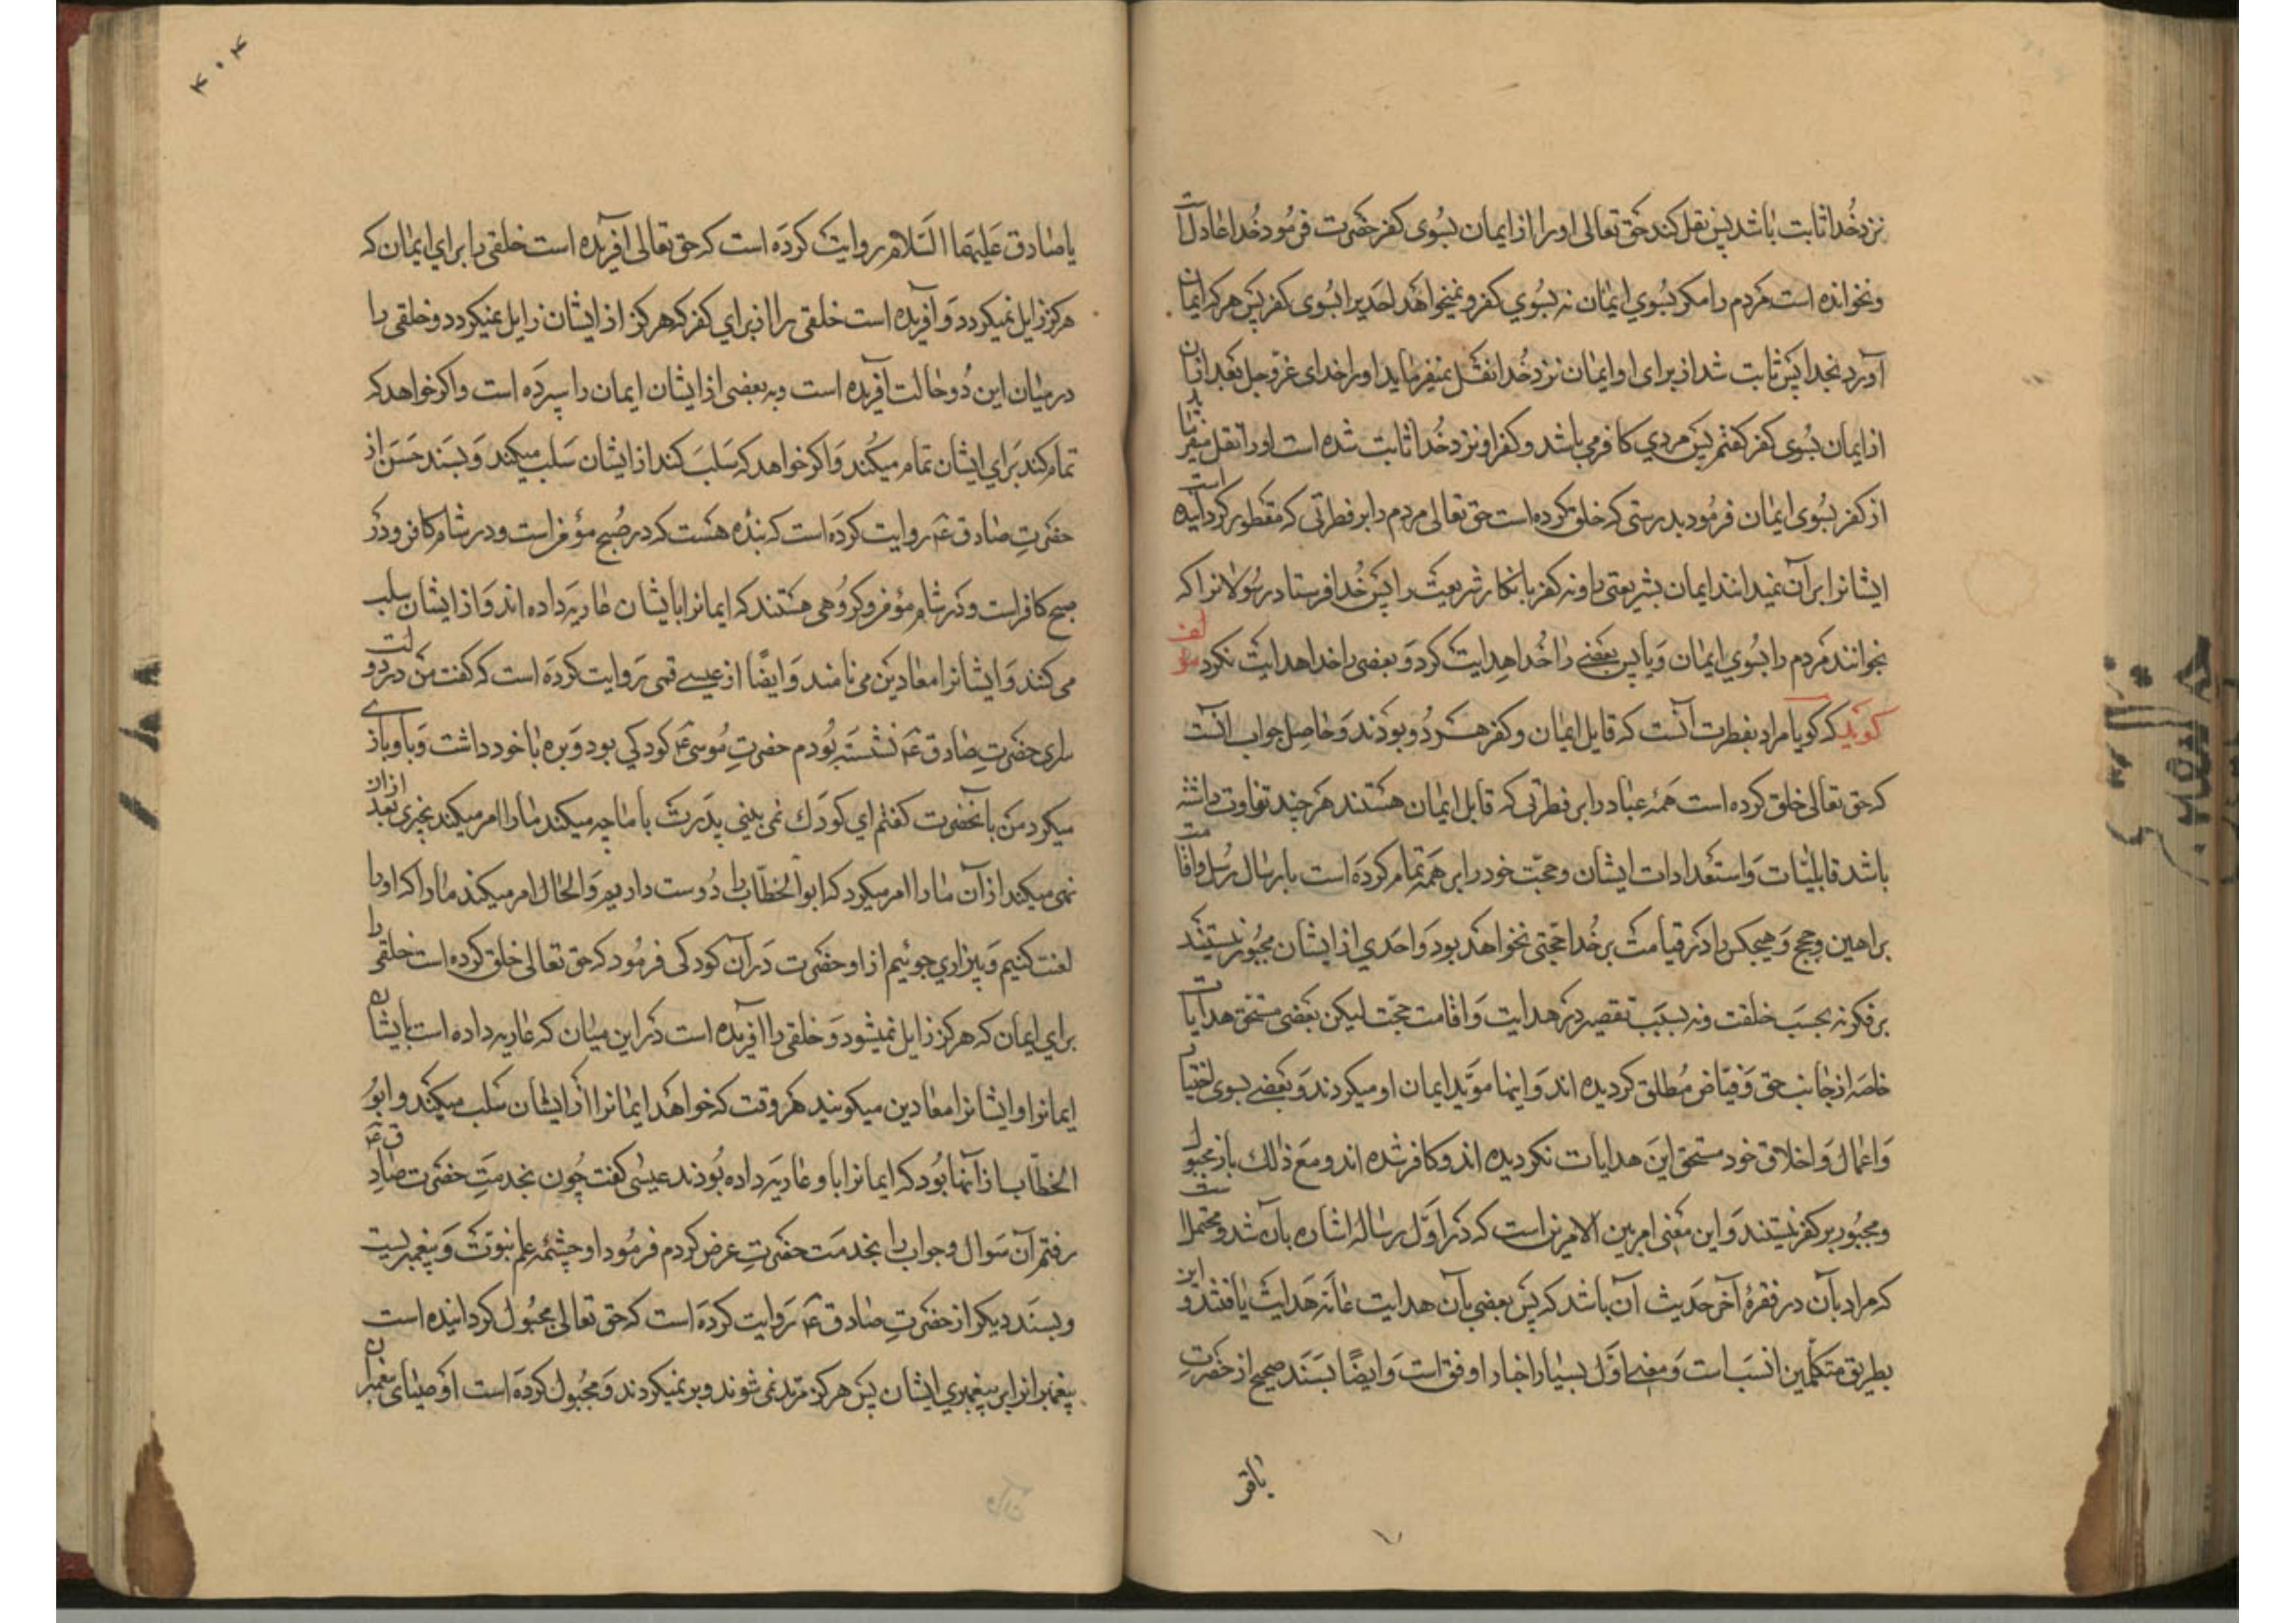 نزد خدا ثابت باشد پس نقل کند حق تعالی او را از ایمان بسوی کفر حضرت فرمود خدا عادلست
و نخوانده است مردم را مکر بسوی ایمان نه بسوی کفر و نمیخواهد احدیرا بسوی کفر پس هر که ایمان
آورد بخدا پس ثابت شد از برای او ایمان نزد خدا نقل نمیفرماید او را خدای عز و جل بعد ازان
از ایمان بسوی کفر کفتم پس مردی کافر می باشد و کفر او نزد خدا ثابت شده است او را نقل میفرماید
از کفر بسوی ایمان فرمود بدرستی که خلق کرده است حق تعالی مردم را بر فطرتی که مفطور کردانیده است
ایشانرا بر آن نمیدانند ایمان بشریعتی را و نه کفر بانکار شریعت را پس خدا فرستاد رسولانرا که
بخوانند مردم را بسوی ایمان و یا پس بعضی را خدا هدایت کرد و بعضی را خدا هدایت نکرد مؤلف
کوید که کویا مراد بفطرت آنست که قابل ایمان و کفر هر دو بودند و حاصل جواب آنست
که حق تعالی خلق کرده است همهٔ عباد را بر فطرتی که قابل ایمان هستند هر چند تفاوت داشته
باشد قابلیّات و استعدادات ایشان و حجّت خود را بر همه تمام کرده است بارسال رسل و اقامت
براهین و حجج و هیچکس را در قیامت بر خدا حجّتی نخواهد بود و احدی از ایشان مجبور نیستند
بر فکونه بحسب خلقت و نه بسبب تقصیر در هدایت و اقامت حجّت لیکن بعضی مستحق هدایات
خاصه از جانب حق و فیّاض مطلق کردیده اند و اینها مویّد ایمان او میکردند و بعضی بسوی اختیار
و اعمال و اخلاق خود مستحق این هدایات نکردیده اند و کافر شده اند و مع ذلک باز مجبول
و مجبور بر کفر نیستند و این معنی امر بین الامرین است که در اوّل رساله اشاره بآن شد و محتملست
که مراد بآن در فقرهٔ آخر حدیث آن باشد که پس بعضی بآن هدایت عامّه هدایت یافتند و این
بطریق متکلّمین انسب است و معنی اوّل بسیار اخبار اوفق است و ایضًا بسند صحیح از حضرت
باقر
۴۰۴
یا صادق علیهما السلام روایت کرده است که حق تعالی آفریده است خلقی را برای ایمان که
هرکز زایل نمیکردد و آفریده است خلقی را از برای کفر که هرکز از ایشان زایل نمیکردد و خلقی را
در میان این دو حالت آفریده است و به بعضی از ایشان ایمان را سپرده است و اکر خواهد که
تمام کند برای ایشان تمام میکند و اکر خواهد که سلب کند از ایشان سلب میکند و بسند حسن از
حضرت صادق ع روایت کرده است که بنده هست که در صبح مؤمن است و در شام کافر و در
صبح کافر است و در شام مؤمن و کروهی هستند که ایمانرا بایشان عاریه داده اند و از ایشان سلب
می کنند و ایشانرا معارین می نامند و ایضًا از عیسی قمی روایت کرده است که کفت من در دولت
سرای حضرت صادق ع نشسته بودم حضرت موسی ع کودکی بود و بره با خود داشت و با او بازی
میکرد من بآنحضرت کفتم ای کودک نمی بینی پدرت با ما چه میکند ما را امر میکند بچیزی بعد ازان
نهی میکند از آن ما را امر میکرد که ابو الخطّاب را دوست داریم و الحال امر میکند ما را که او را
لعنت کنیم و بیزاری جوئیم از او حضرت در آن کودکی فرمود که حق تعالی خلق کرده است خلقی را
برای ایمان که هرکز زایل نمیشود و خلقی را آفریده است در این میان که عاریه داده است بایشان
ایمانرا و ایشانرا معارین میکویند هر وقت که خواهد ایمانرا از ایشان سلب میکند و ابو
الخطّاب از آنها بود که ایمانرا باو عاریه داده بودند عیسی کفت چون بخدمت حضرت صادق ع
رفتم آن سوال و جواب را بخدمت حضرت عرض کردم فرمود او چشمه علم نبوّت و پیغمبریست
و بسند دیکر از حضرت صادق ع روایت کرده است که حق تعالی مجبول کردانیده است
پیغمبرانرا بر پیغمبری ایشان پس هرکز مرتد نمی شوند و بر نمیکردند و مجبول کرده است اوصیای پیغمبران